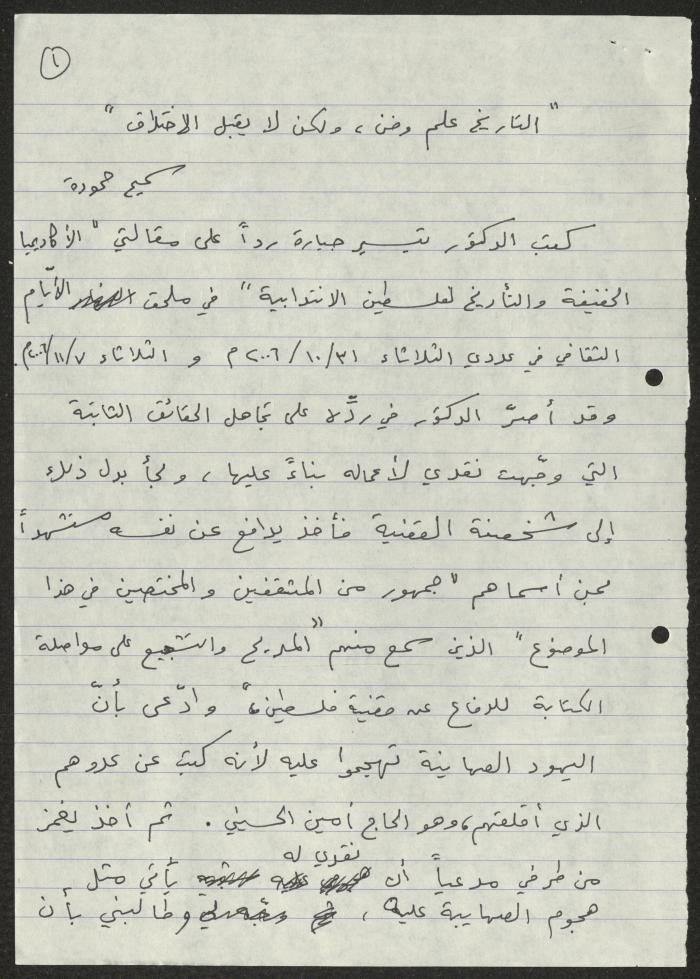 ١
"التاريخ علم وفن، ولكن لا يقبل الاختلاق"
سميح حمودة
كتب الدكتور تيسير جبارة رداً على مقالتي "الأكاديميا
الخفيفة والتأريخ لفلسطين الانتدابية" في ملحق الأيّام
الثقافي في عددي الثلاثاء ٣١/١٠/٢٠٠٦م و الثلاثاء ٧/١١/٢٠٠٦م.
وقد أصرّ الدكتور في ردِّه على تجاهل الحقائق الثابتة
التي وجّهت نقدي لأعماله بناءً عليها، ولجأ بدل ذلك
إلى شخصنة القضية فأخذ يدافع عن نفسه مستشهداً
بمن أسماهم "جمهور من المثقفين والمختصين في هذا
الموضوع" الذين سمع منهم "المديح والتشجيع على مواصلة
الكتابة للدفاع عن قضية فلسطين"، وادّعى بأنّ
اليهود الصهاينة تهجموا عليه لأنه كتب عن عدوهم
الذي أقلقهم، وهو الحاج أمين الحسيني. ثم أخذ يغمز
من طرفي مدعياً أن نقدي له يأتي مثل
هجوم الصهاينة عليه، وطالبني بأن